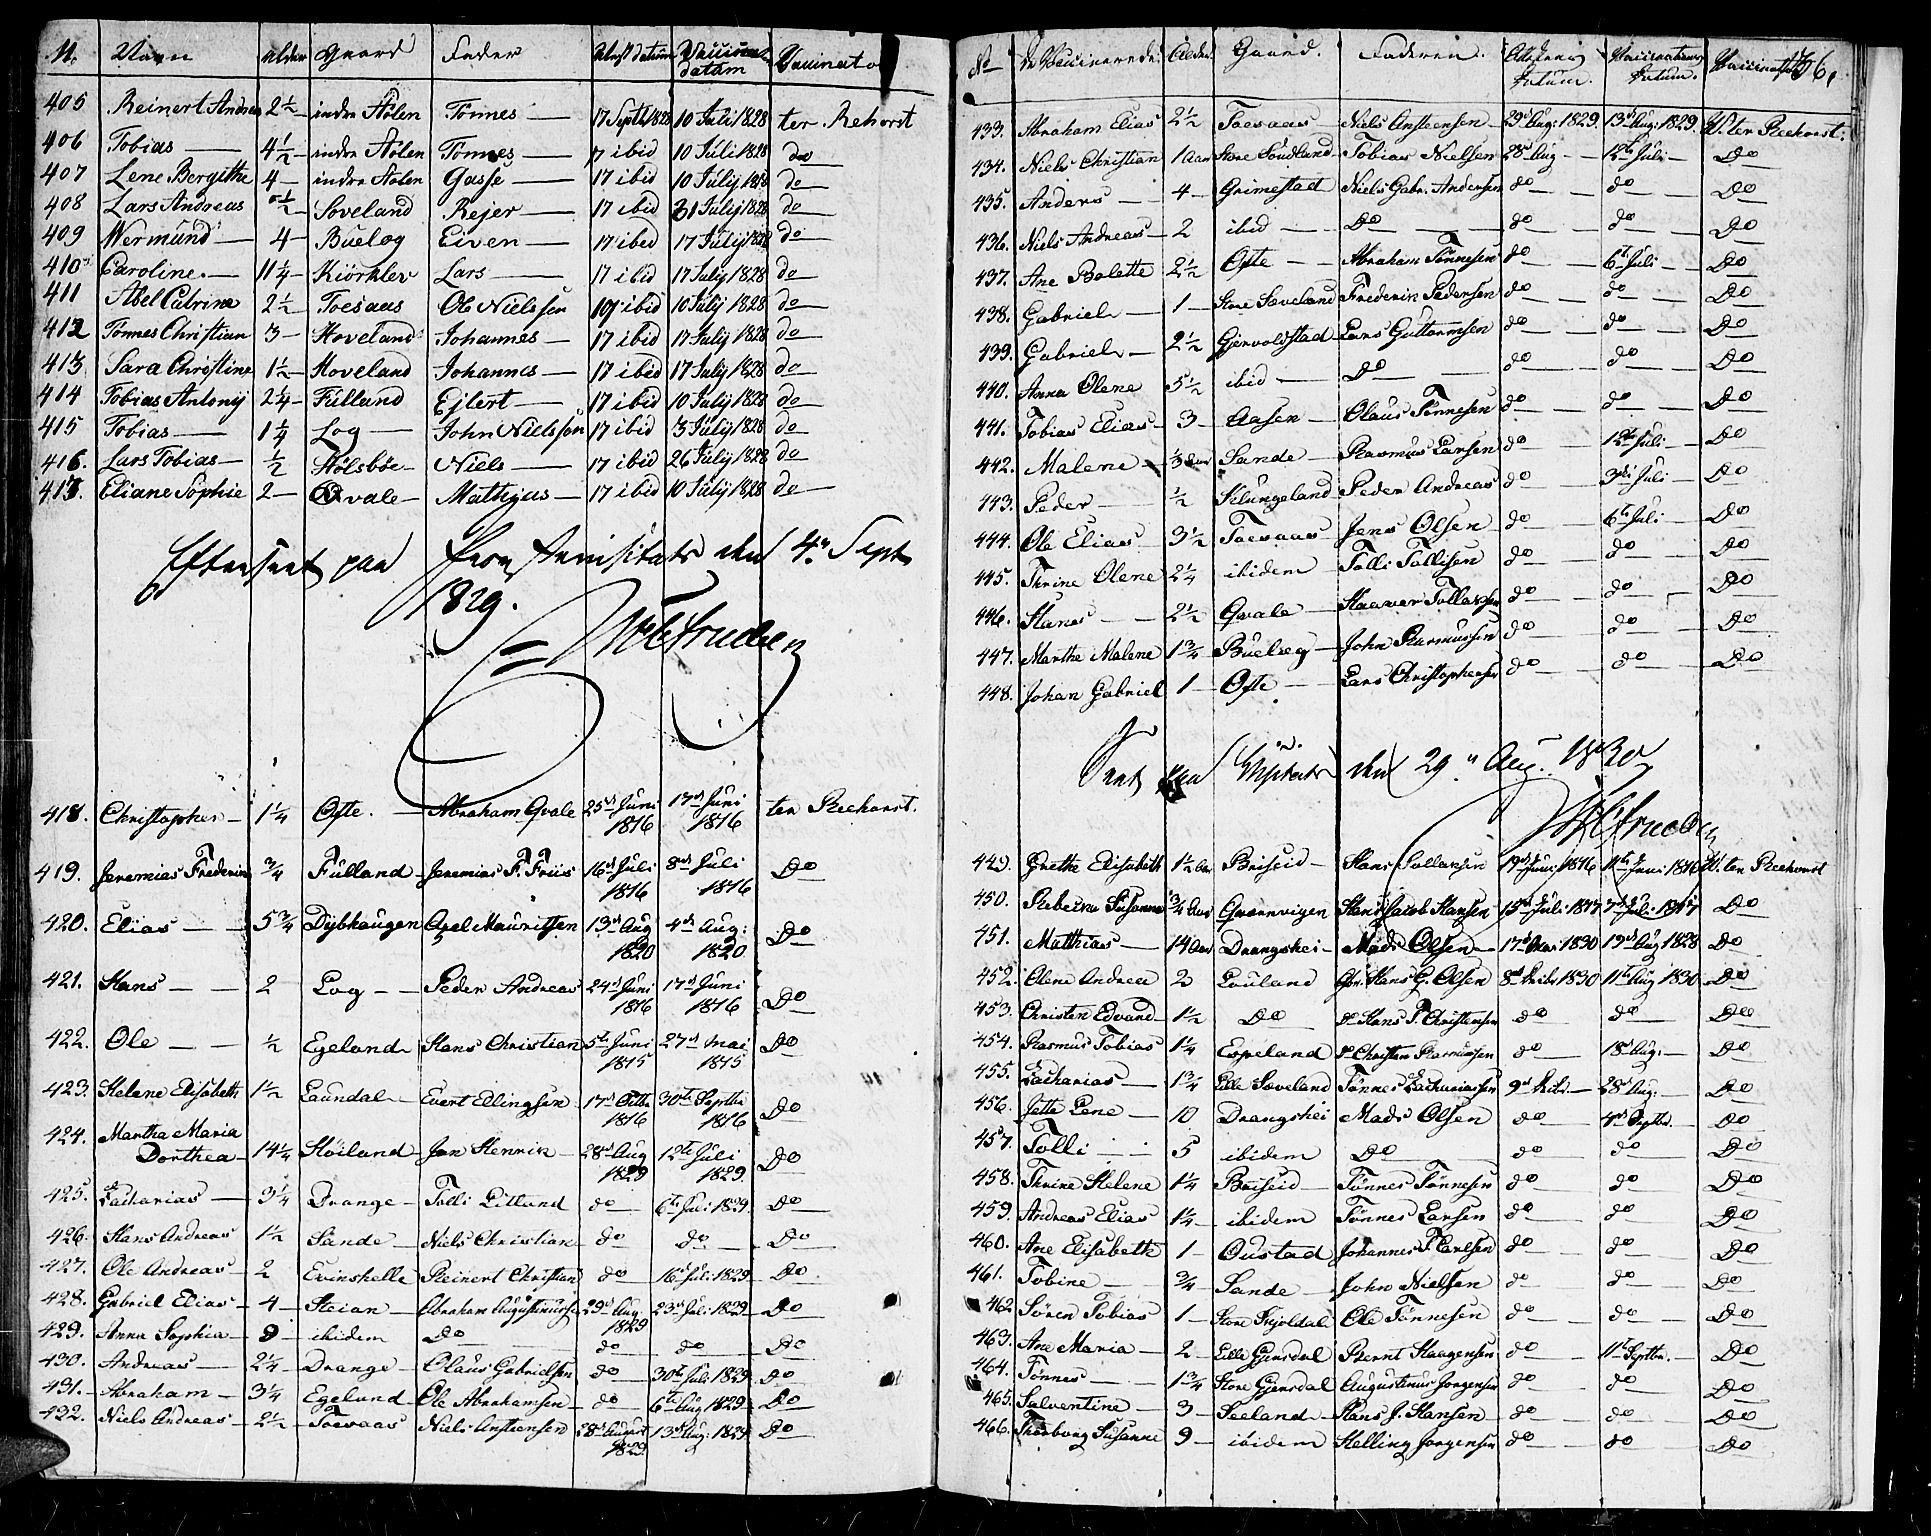 N. Navn Alder Gaard Fader Attest datum Vaccinat. datum Vaccinator
405 Reinert Andrea 2½ indre Aølen Tönnes 17 Septbr 1828 10 Juli 1828 ter Rehorst
406 Tobias 4½ indre Aølen Tönnes 17 ibid 10 Juli 1828 do
407 Lene Bergithe 4 indre Aølen Gasse 17 ibid 10 Julij 1828 do
408 Lars Andreas ½ Soveland Rejer 17 ibid 31 Julij 1828 do
409 Wermund 4 Buelog Eiven 17 ibid 17 Julij 1828 do
410 Caroline 11¼ Kiörklev Lars 17 ibid 17 Julij 1828 do
411 Abel Catrine 2½ Toesaas Ole Nielssøn 17 ibid 10 Julij 1828 do
412 Tönnes Christian 3 Hoveland Johannes 17 ibid 17 Julij 1828 do
413 Sara Christine 1½ Hoveland Johannes 17 ibid 17 Julij 1828 do
414 Tobias Antonij 2¼ Fülland Ejlert 17 ibid 10 Julij 1828 do
415 Tobias 1¼ Log John Nielssön 17 ibid 3 Julij 1828 do
416. Lars Tobias ½ Hölsböe Niels 17 ibid 26 Julij 1828 do
417. Eliane Sophie 2 Qvale Mathijas 17 ibid 10 Julij 1828 do
Efterseet paa den 4de Sept
1829.
418. Christopher 1¼ Ofte. Abraham Qvale 25de Juni 1816 17de Juni 1816 ter Reehorst.
419. Jeremias Frederik ¾ Fülland Jeremias F. Friis 16de Juli 1816 8de Juli 1816 Do
420. Elias 5¾ Dybhaugen Axel Mauritsen 13de Aug 1820 4de Aug: 1820 Do
421. Hans 2 Log Peder Andreas 24de Juni 1816 17de Juni 1816 Do
422. Ole ½ Egeland Hans Christian 5te Juni 1815 27de Mai 1815 Do
423. Helene Elisabeth 1½ Laundal Evert Ellingsen 17de Octbr 1816 30te Septbr 1816 Do
424. Martha Maria
Dorthea 14¼ Höiland Jan Henrik 28de Aug 1829 12te Juli 1829. Do
425. Zacharias 3¼ Drange Tolli Litland do 6te Juli 1829 Do
426. Hans Andreas 1½ Sande Niels Christian do do Do
427. Ole Andreas 2 Evinshelle Reinert Christian do 16de Juli 1829 Do
428. Gabriel Elias 4 Steian Abraham Augustinussen 29de Aug. 1829 23de Juli 1829 Do
429. Anna Sophia 9 ibidem Do do do Do
430. Andreas 2¼ Drange Olaus Gabrielsen do 30te Juli 1829 Do
431. Abraham 3¼ Egeland Ole Abrahamsen do 6te Aug 1829 Do
432. Niels Andreas 2½ Toesaas Niels Ansteensen 28de August 1829 13de Aug: 1829 Do
No De Vaccinerede Alder Gaard. Faderen. Attestens Datum. Vaccinations Datum. Vaccinator 56.
433. Abraham Elias 2½ Toesaas Niels Ansteensen 29de Aug: 1829 13de Aug: 1829. W. ter Reehorst.
434. Niels Christian 1 Aar Store Soudland Tobias Nielsen 28de Aug 12te Juli Do
435. Anders 4 Grimestad Niels Gabr. Andersen do do Do
436. Niels Andreas 2 ibid Do do do Do
437. Ane Bolette 2½ Ofte Abraham Tönnesen do 6te Juli Do
438. Gabriel 1 Store Soveland Frederik Pedersen do do Do
439. Gabriel 2½ Gjervoldstad Lars Guttormsen do do Do
440. Anna Olene 5½ ibid Do do do Do
441. Tobias Elias 3 Aasen Olaus Tönnesen do do Do
442. Malene ⅓ Aar Sande Rasmus Larsen do 12te Juli Do
443. Peder ½ Klungeland Peder Andreas do 3die Juli Do
444. Ole Elias 3½ Toesaas Jens Olsen do 6te Juli Do
445. Thrine Olene 2¼ ibidem Tolli Tollisen do do Do
446. Hans 2½ Qvale Haaver Tollassen do do Do
447. Marthe Malene 1¾ Buelseg John Rasmussen do do Do
448. Johan Gabriel 1 Ofte Lars Christophersen do do Do
Seet paa Visitats den 29de Aug. 1830
449. Grethe Elisabeth 1½ Aar Briseid Hans Tollassen 19de Juni 1816 11te Juni 1816 W. ter Reehorst
450. Rebecka Susanne ¾ Aar Qvarnvigen Hans Jacob Hansen 15de Juli 1817 7de Juli 1817 Do
451. Matthias 14 Aar Drangshei Mads Olsen 17de 1830 19de Aug 1828 Do
452. Olene Andrea 2 Louland Hans G. Olsen 8de Octbr 1830 11te Aug 1830 Do
453. Christen Edvard 1½ Do Hans P. Christensen do do Do
454. Rasmus Tobias 1¼ Espeland Christen Rasmussen do 18de Aug. Do
455. Zacharias 1¾ Lille Soveland Tönnes Zachariassen 9de Octbr 28de Aug. Do
456. Jette Lene 10 Drangshei Mads Olsen do 4de Septbr. Do
457. Tolli 5 ibidem Do do do Do
458. Thrine Helene 1¼ Briseid Tönnes Tönnesen do do Do
459. Andreas Elias 1¼ ibidem Tönnes Larsen do do Do
460. Ane Elisabeth 1 Oustad Johannes T. Carlsen do do Do
461. Tobine ¾ Sande John Nielsen do do Do
462 Sören Tobias 1 Store Skjoldal Ole Tönnesen do do Do
463. Ane Maria 2 Lille Gjersdal Bernt Haagensen do 11te Septbr. Do
464. Tönnes 1¾ Store Gjersdal Augustinus Jorgensen do do Do
465. Salventine 3 Seeland Hans J. Hansen do do Do
466. Thorborg Susanne 9 ibidem Helling Jorgensen do do Do